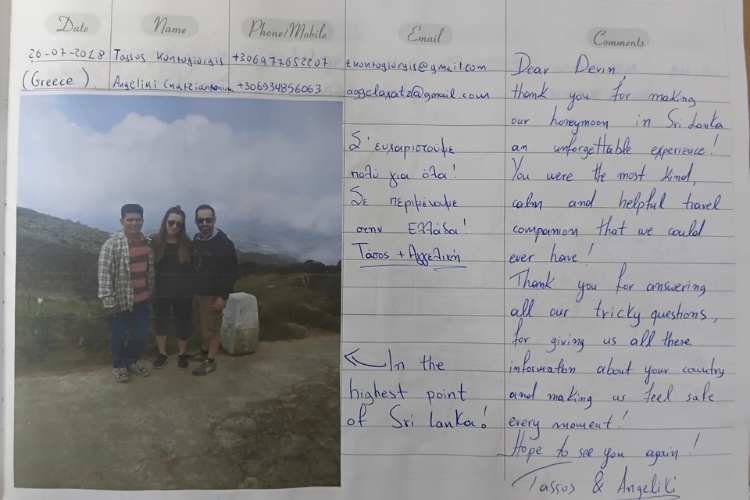 Date Name Phone/Mobile Email Comments
26-07-2018 Tassos Kontogiorgis +306977652207 tkontogiorgis@gmail.com
(Greece) Angeliki +306934856063 aggelaxatz@gmail.com
Σ' ευχαριστούμε
πολύ για όλα!
Σε περιμένουμε
στην Ελλάδα!
Τάσος + Αγγελική
In the
highest point
of Sri Lanka!
Dear Devin,
thank you for making
our honeymoon in Sri Lanka
an unforgettable experience!
You were the most kind,
calm and helpful travel
companion that we could
ever have!
Thank you for answering
all our tricky questions,
for giving us all there
information about your country
and making us feel safe
every moment!
Hope to see you again!
Tassos & Angeliki